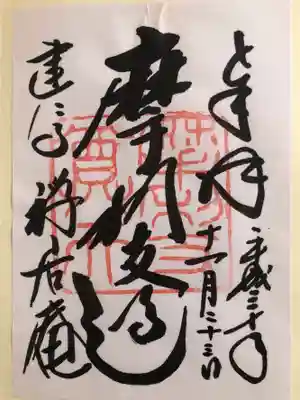 奉拝
平成三十年
十一月二十三日
摩利支尊天
建仁寺 禅居庵